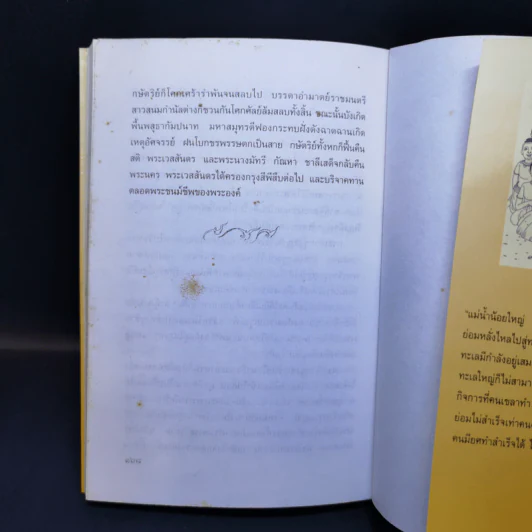 กษัตริย์ก็โศกเศร้ารำพันจนสลบไป บรรดาอำมาตย์ราชมนตรี
สาวสนมกำนัลต่างก็ชวนกันโศกศัลย์ล้มสลบทั้งสิ้น ขณะนั้นบังเกิด
พื้นพสุธากัมปนาท มหาสมุทรตีฟองกระทบฝั่งดังฉาดฉานเกิด
เหตุอัศจรรย์ ฝนโบกขรพรรษตกเป็นสาย กษัตริย์ทั้งหกก็ฟื้นคืน
สติ พระเวสสันดร และพระนางมัทรี กัณหา ชาลีเสด็จกลับคืน
พระนคร พระเวสสันดรได้ครองกรุงสีพีสืบต่อไป และบริจาคทาน
ตลอดพระชนม์ชีพของพระองค์
"แม่น้ำน้อยใหญ่
ย่อมหลั่งไหลไปสู่
ทะเลมีกำลังอยู่เสม
ทะเลใหญ่ก็ไม่สามา
กิจการที่คนเขลาทำ
ย่อมไม่สำเร็จเท่าคน
คนมียศทำสำเร็จได้